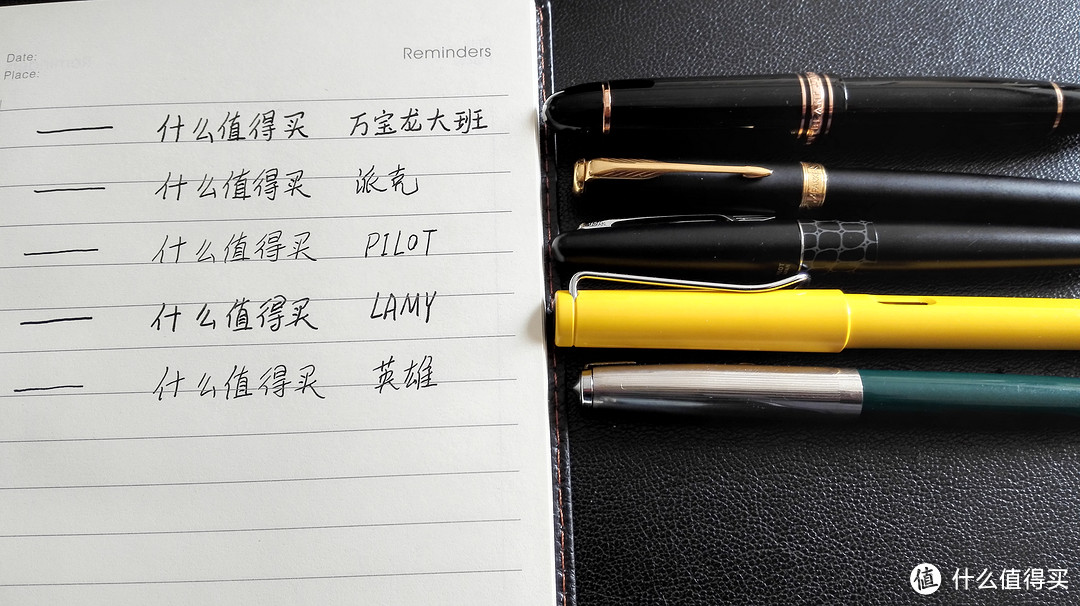 Date:
Place:
Reminders
什么值得买 万宝龙大班
什么值得买 派克
什么值得买 PILOT
什么值得买 LAMY
什么值得买 英雄
值 什么值得买